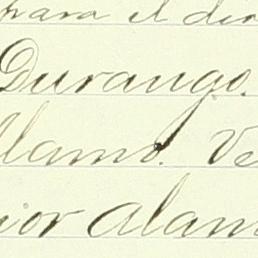 para el dia
Durango.
Alamo. Ve
ior Alam